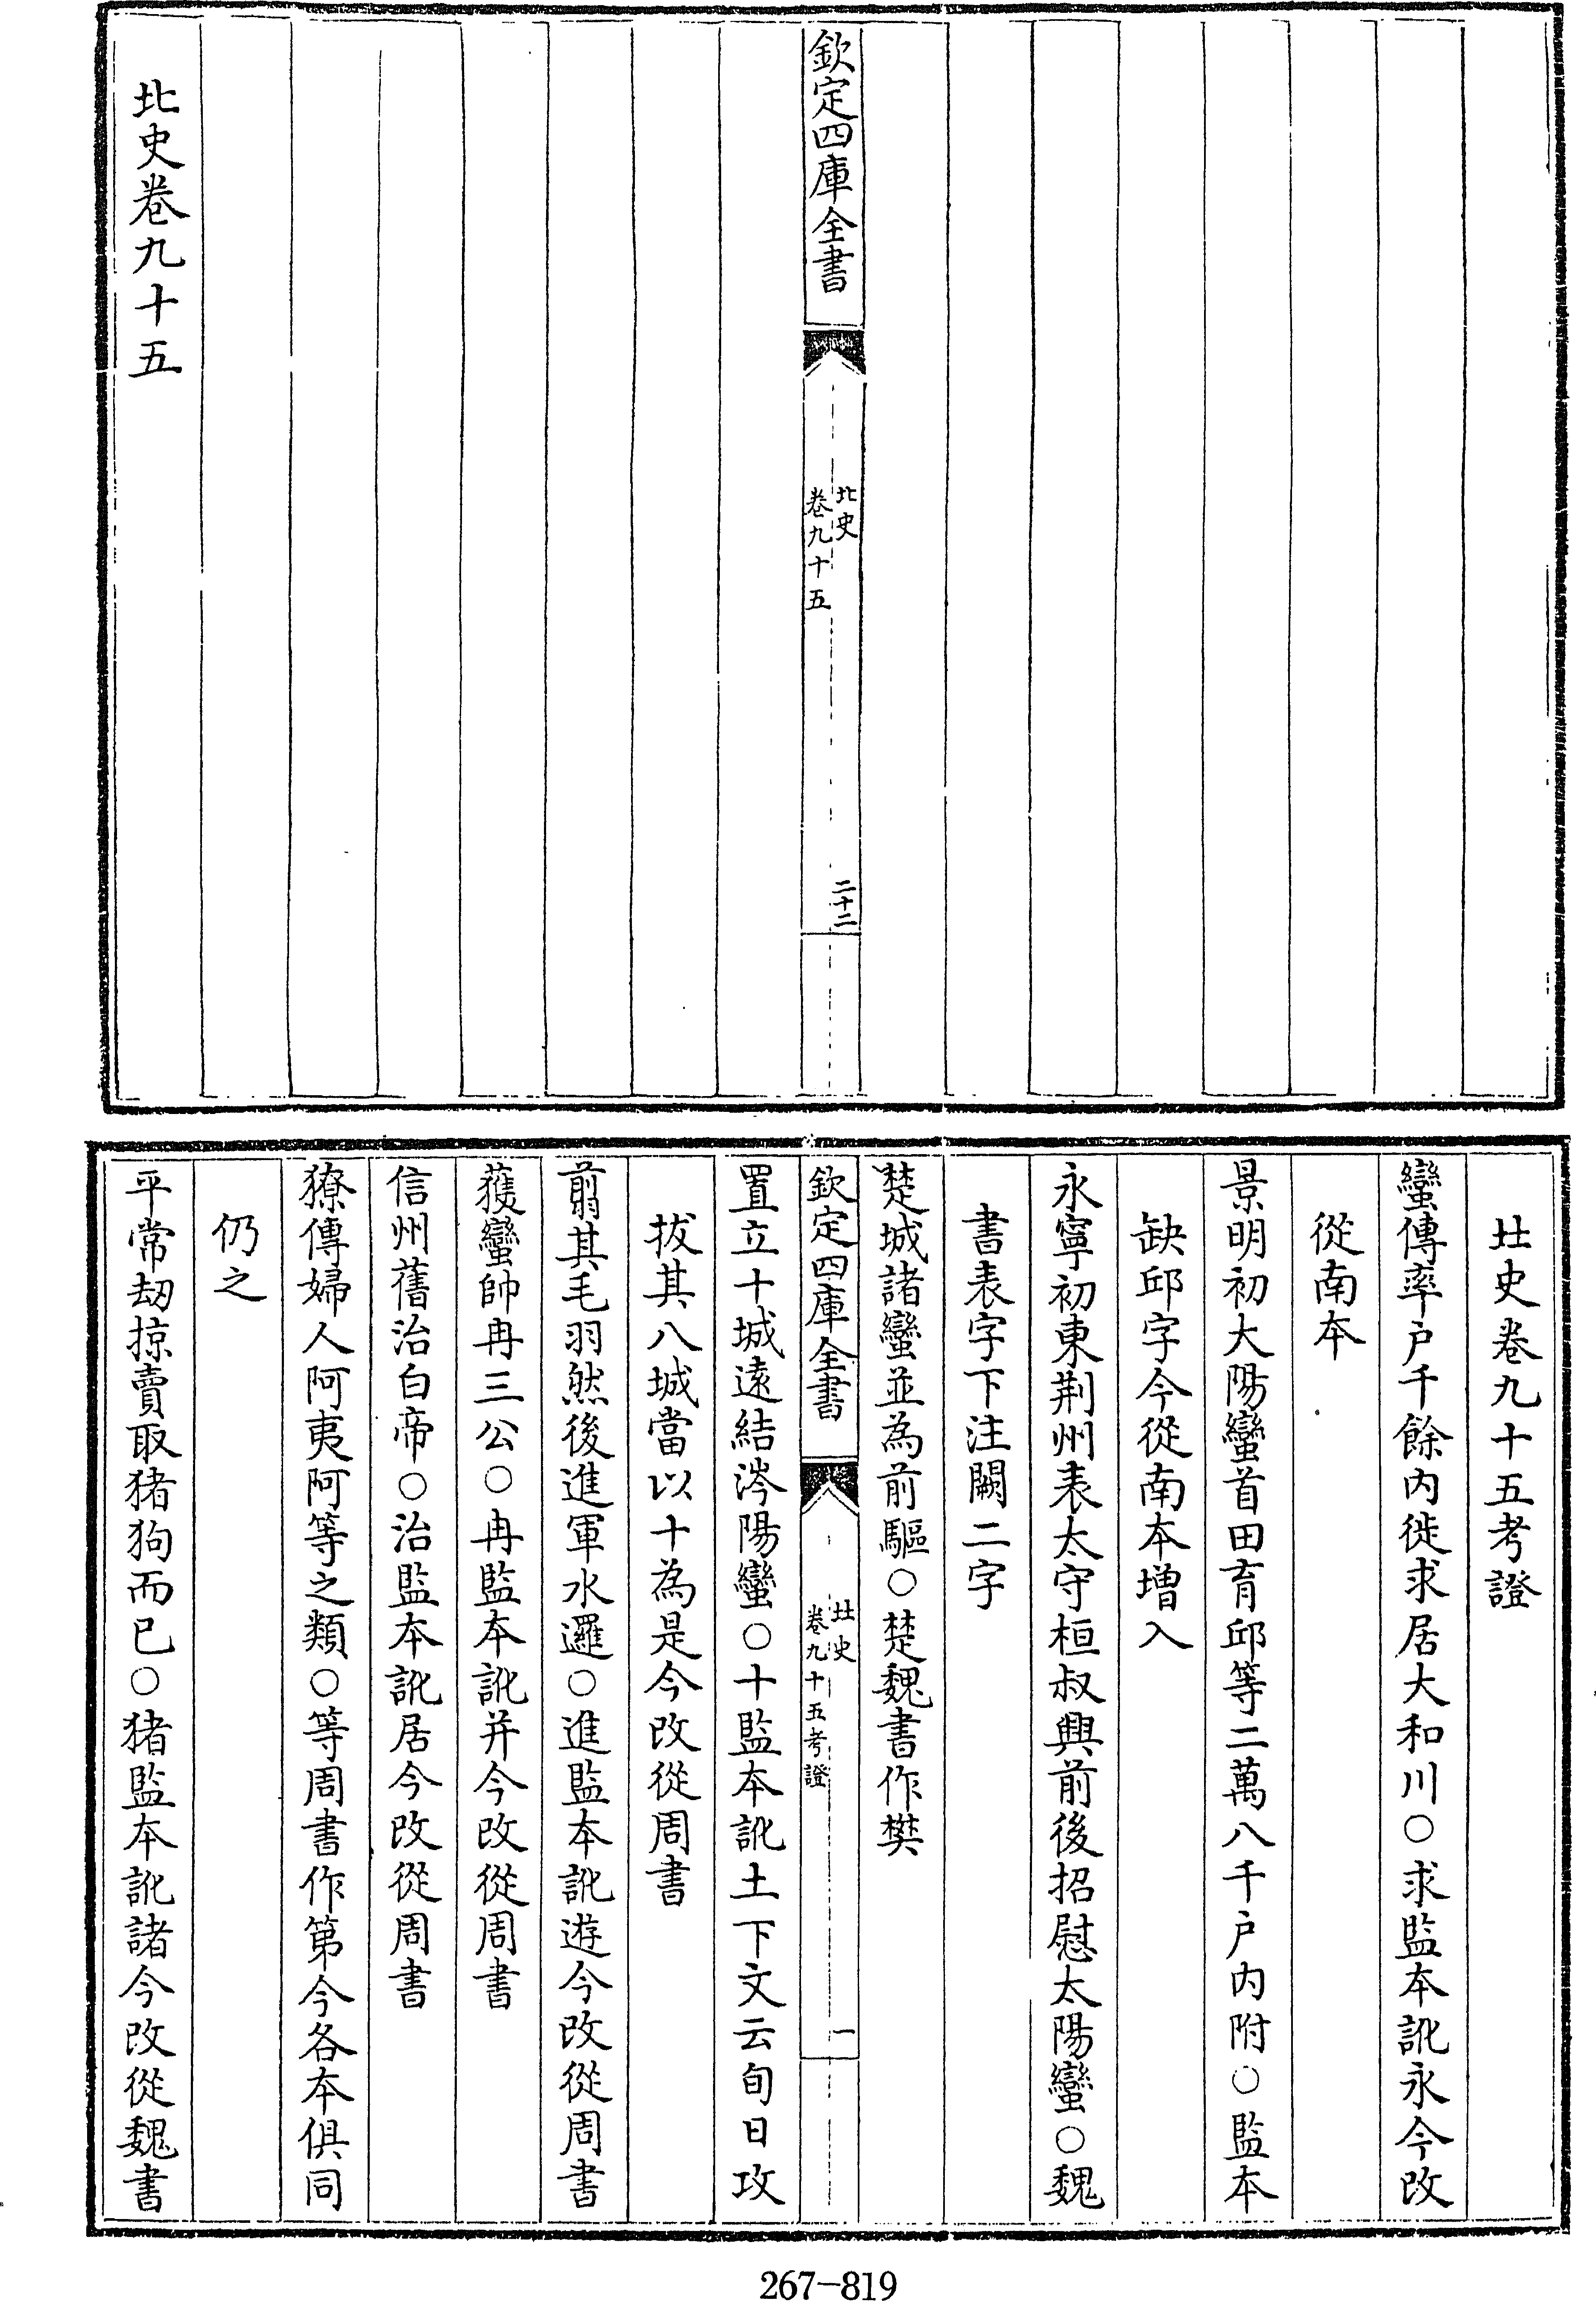 欽定四庫全書
北史
卷九十五
二十二
北史卷九十五
北史卷九十五考證
蠻傳率户千餘内徙求居大和川○求監本訛永今改
從南本
景明初大陽蠻首田育邱等二萬八千户内附○監本
缺邱字今從南本增入
永寧初東荆州表太守桓叔興前後招慰太陽蠻○魏
書表字下注闕二字
楚城諸蠻並為前驅○楚魏書作樊
欽定四庫全書
北史
卷九十五考證
一
置立十城遠結涔陽蠻○十監本訛土下文云旬日攻
拔其八城當以十為是今改從周書
翦其毛羽然後進軍水邏○進監本訛遊今改從周書
獲蠻帥冉三公○冉監本訛并今改從周書
信州舊治白帝○治監本訛居今改從周書
獠傳婦人阿夷阿等之類○等周書作第今各本俱同
仍之
平常劫掠賣取猪狗而已○猪監本訛諸今改從魏書
267-819